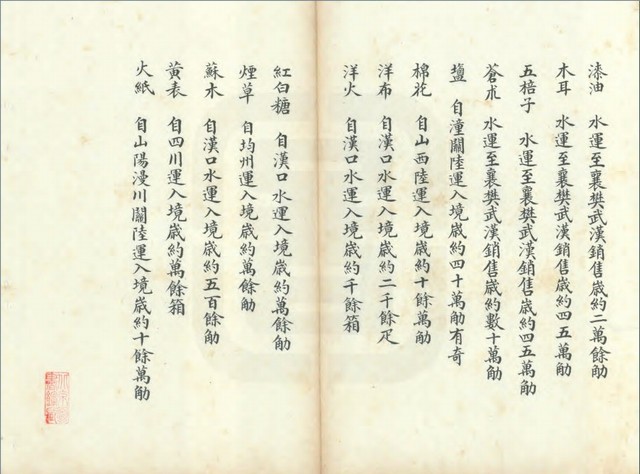 漆油　水運至襄樊武漢銷售歲約二萬餘觔
木耳　水運至襄樊武漢銷售歲約四五萬觔
五棓子　水運至襄樊武漢銷售歲約四五萬觔
蒼朮　水運至襄樊武漢銷售歲約數十萬觔
鹽　自潼關陸運入境歲約四十萬觔有奇
棉花　自山西陸運入境歲約十餘萬觔
洋布　自漢口水運入境歲約二千餘疋
洋火　自漢口水運入境歲約千餘箱
紅白糖　自漢口水運入境歲約萬餘觔
煙草　自均州運入境歲約萬餘觔
蘇木　自漢口水運入境歲約五百餘觔
黃表　自四川運入境歲約萬餘箱
火紙　自山陽漫川關陸運入境歲約十餘萬觔